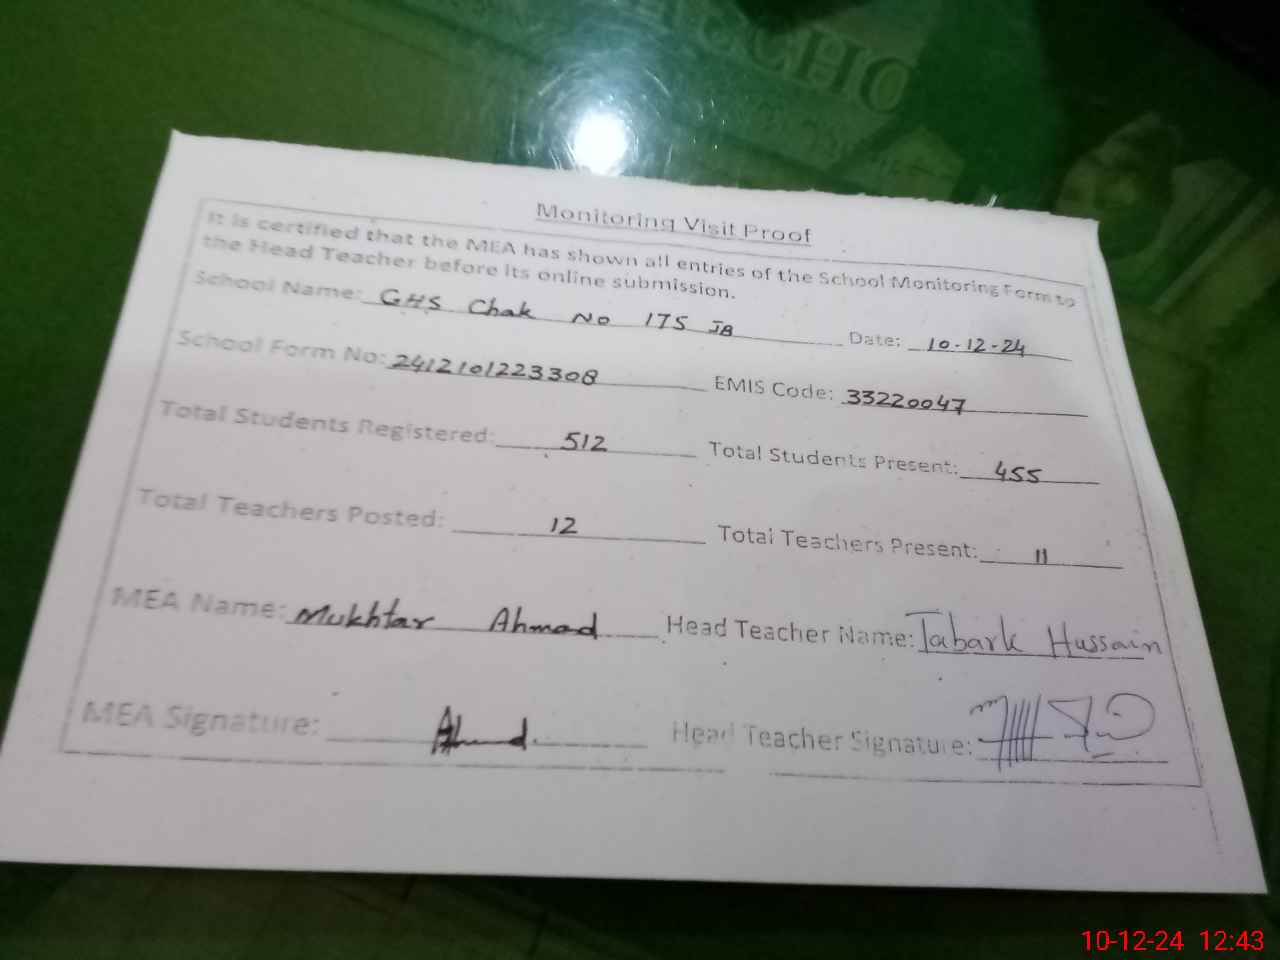 ECHO
Monitoring Visit Proof
It is certified that the MEA has shown all entries of the School Monitoring Form to
the Head Teacher before its online submission.
School Name: GHS Chak No 175 JB Date: 10-12-24
School Form No: 2412101223308 EMIS Code: 33220047
Total Students Registered: 512 Total Students Present: 455
Total Teachers Posted: 12 Total Teachers Present: 11
MEA Name: Mukhtar Ahmad Head Teacher Name: Tabark Hussain
MEA Signature: Ahmad Head Teacher Signature:
10-12-24 12:43